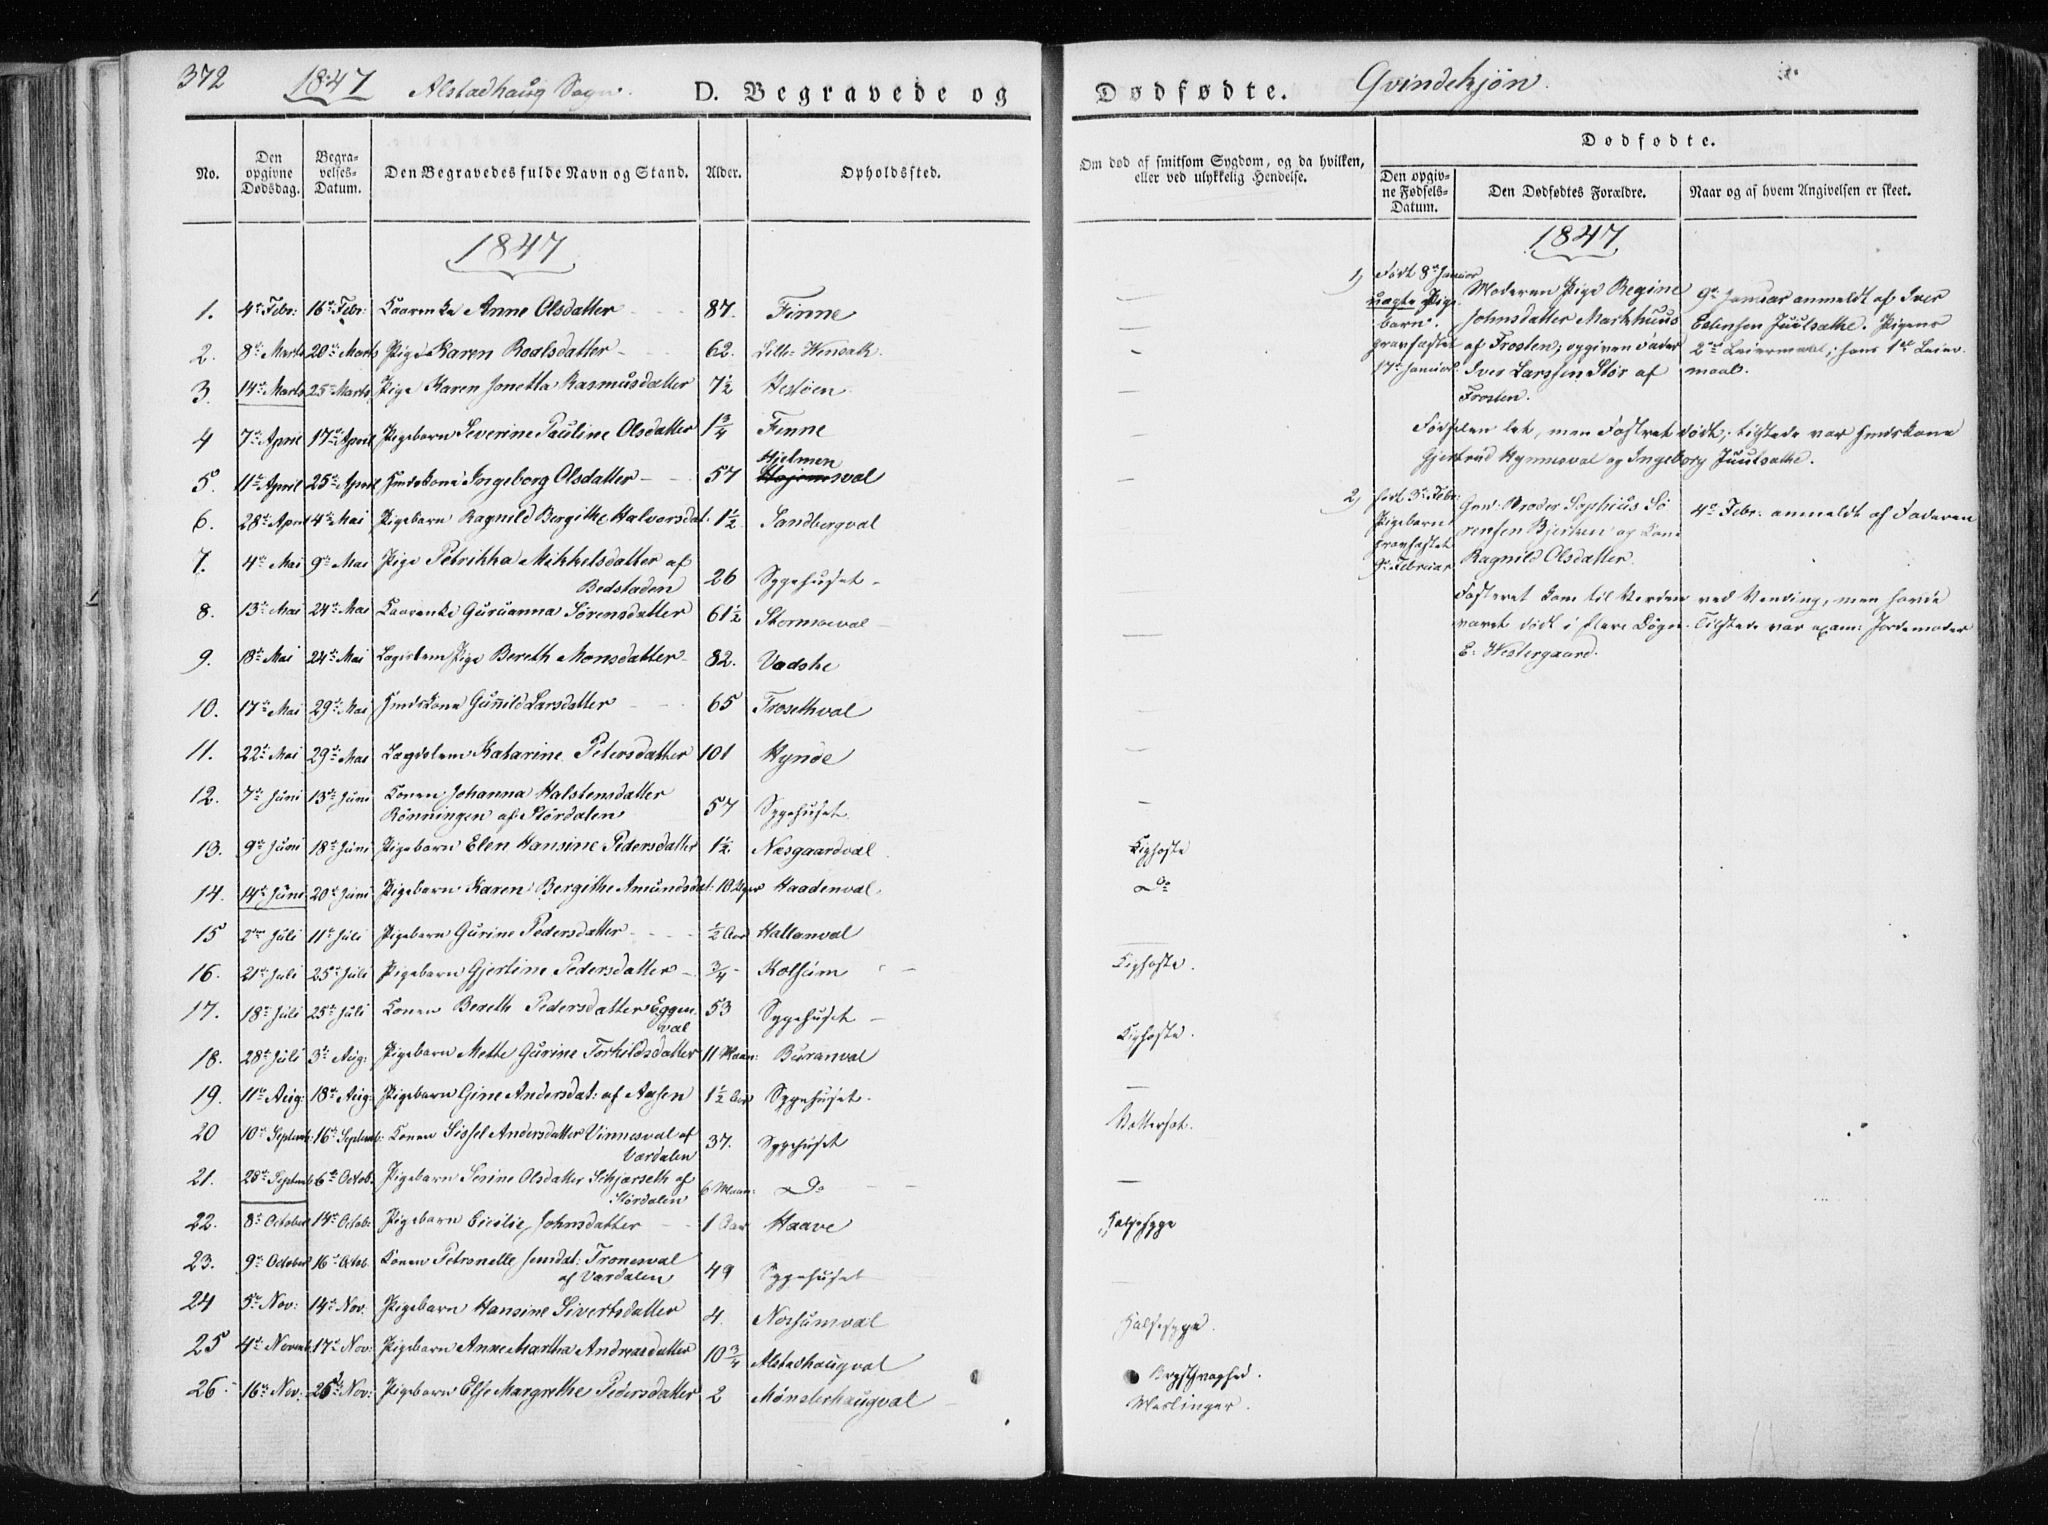 372 1847 Alstadhaug Sogn. D. Begravede og
No. Den opgivne Dødsdag. Begravelses-Datum. Den Begravedes fulde Navn og Stand. Alder. Opholdssted.
1847
1. 4de Febr: 16de Febr: Kaarenke Anne Olsdatter 87. Finne
2. 8de Marts 20de Marts Pige Karen Roalsdatter 62. Lille-Wensak.
3. 14de Marts 25de Marts Pige Karen Jonetta Rasmusdatter 7½ Hestøen
4 7de April 17de April Pigebarn Severine Pauline Olsdatter 1¾ Finne
Hjelmen
5. 11te April 25de April Indskone Ingeborg Olsdatter 57 Hojemsval
6. 28de April 4de Mai Pigebarn Ragnild Bergithe Halvorsdat: 1½. Sandbergval
7. 4de Mai 9de Mai Pige Petrikka Mikkelsdatter af
Bedstaden 26 Sygehuset
8. 13de Mai 24de Mai Kaarenke Guruanna Sørensdatter 61½ Stormoeval
9. 18de Mai 24de Mai Lægdslem Pige Bereth Monsdatter 82. Vadshe
10. 17de Mai 29de Mai Indskone Gunnild Larsdatter 65 Trosethval
11. 22de Mai 29de Mai Lægdslem Katarine Petersdatter 101 Hynde
12. 7de Juni 13de Juni Konen Johanna Halstensdatter
Rönningen af Størdalen 57 Sygehuset
13. 9de Juni 18de Juni Pigebarn Elen Hansine Pedersdatter 1½. Næsgaardval
14. 14de Juni 20de Juni Pigebarn Karen Bergithe Amundsdat: 10 Uger Haadenval
15 2den Juli 11te Juli Pigebarn Gurine Pedersdatter ½ Aar Hallanval
16. 21de Juli 25de Juli Pigebarn Gjertine Pedersdatter ¾ Holsum
17. 18de Juli 25de Juli Konen Bereth Pedersdatter Eggen
val 53 Sygehuset
18. 28de Juli 3de Aug: Pigebarn Mette Gurine Torkildsdatter 11 Maan: Buranval
19. 11te Aug: 18de Aug: Pigebarn Gine Andersdat: af Aasen 1½ Aar Sygehuset.
20 10de Septemb: 16de Septemb: Konen Sissel Andersdatter Vinnesval af
Værdalen 37. Sygehuset
21. 28de Septemb: 6te Octob. Pigebarn Serine Olsdatter Skjærseth af
Størdalen 6 Maan: Do
22. 8de October 14de Octob: Pigebarn Cicilie Johnsdatter 1 Aar Haave
23. 9de October 16de Octob. Konen Petronelle Jensdat: Tronesval
af Værdalen 49 Sygehuset
24 5te Nov: 14de Nov. Pigebarn Hansine Sivertsdatter 4. Norsumval
25 4de Novemb: 17de Nov: Pigebarn Anne Martha Andreasdatter 10¾ Alstadhaugval
26. 16de Nov. 25de Nov: Pigebarn Else Margrethe Pedersdatter 2 Mønsterhaugval
Dødfødte. Qvindekjön.
Om død af smitsom Sygdom, og da hvilken, eller ved ulykkelig Hendelse.
Dødfødte.
Den opgivne Fødsels-Datum. Den Dødfødtes Forældre. Naar og af hvem Angivelsen er skeet.
1847
1, Født 8de Januar
uægte Pige-
barn.
gravfæstet
17de Januar.
Moderen Pige Regine
Johnsdatter Markhuus
af Frosten; opgiven Fader
Iver Larssen Stor af
Frosten.
9de Januar anmeldt af Iver
Estensen Juulsathe. Pigens
2det Leiermaal; hans 1ste Leier
maal.
Fødselen let, men Fostret dødt; tilstede var Indskone
Gjertrud Hynnesval og Ingeborg Juulsathe.
2, Født 3de Febr:
Pigebarn
gravfæstet
Februar
Grd. Broder Sophius Sö
rensen Bjerken og Kone
Ragnild Olsdatter
4de Febr: anmeldt af Faderen
Fosteret kom til Verden ved Vending, men havde
været dødt i flere Døgn. Tilstede var exam: Jordemoder
E. Westergaard.
Kighoste
Do
Kighoste.
Kighoste.
Halssyge
Halssyge.
Brystsvaghed.
Meslinger.